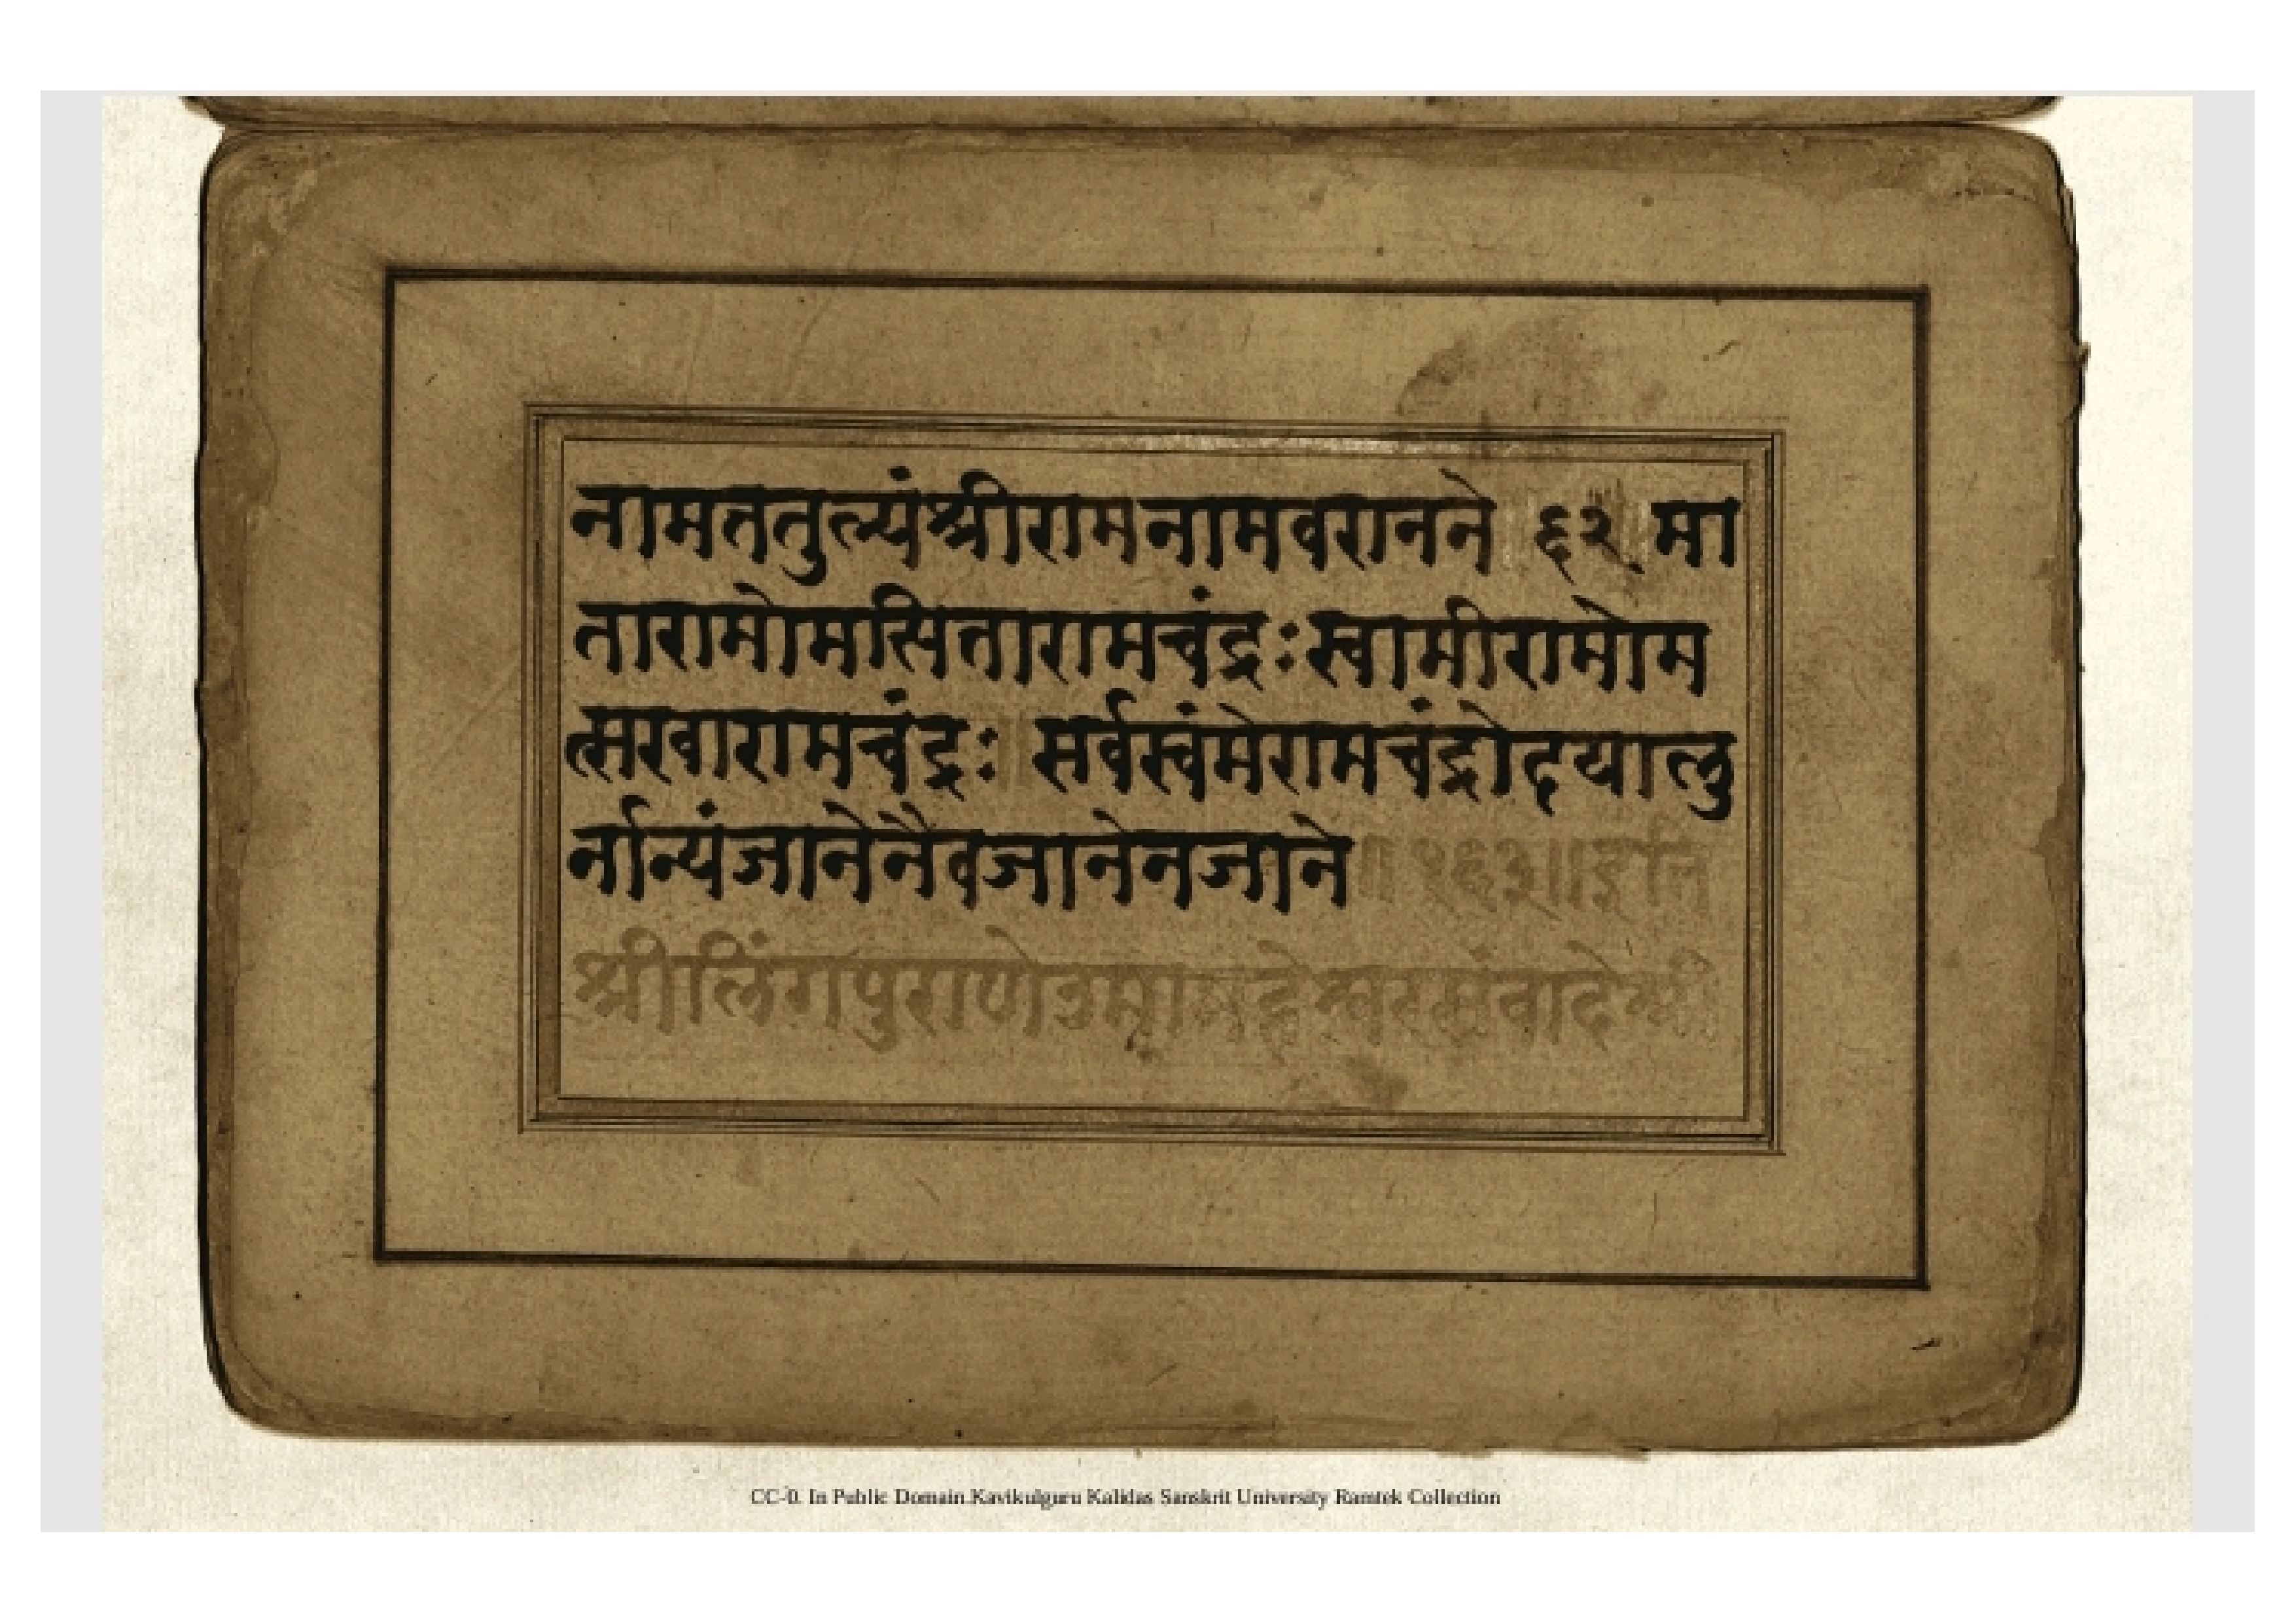 नामततुल्यंश्रीरामनामवरानने ६२ मा
तारामोमत्पितारामचंद्रःस्वामीरामोम
त्सखारामचंद्रः सर्वस्वंमेरामचंद्रोदयालु
र्नान्यंजानेनैवजानेनजाने॥१६३॥इति
श्रीलिंगपुराणेउमामहेश्वरसंवादेश्री
CC-0. In Public Domain.Kavikulguru Kalidas Sanskrit University Ramtek Collection